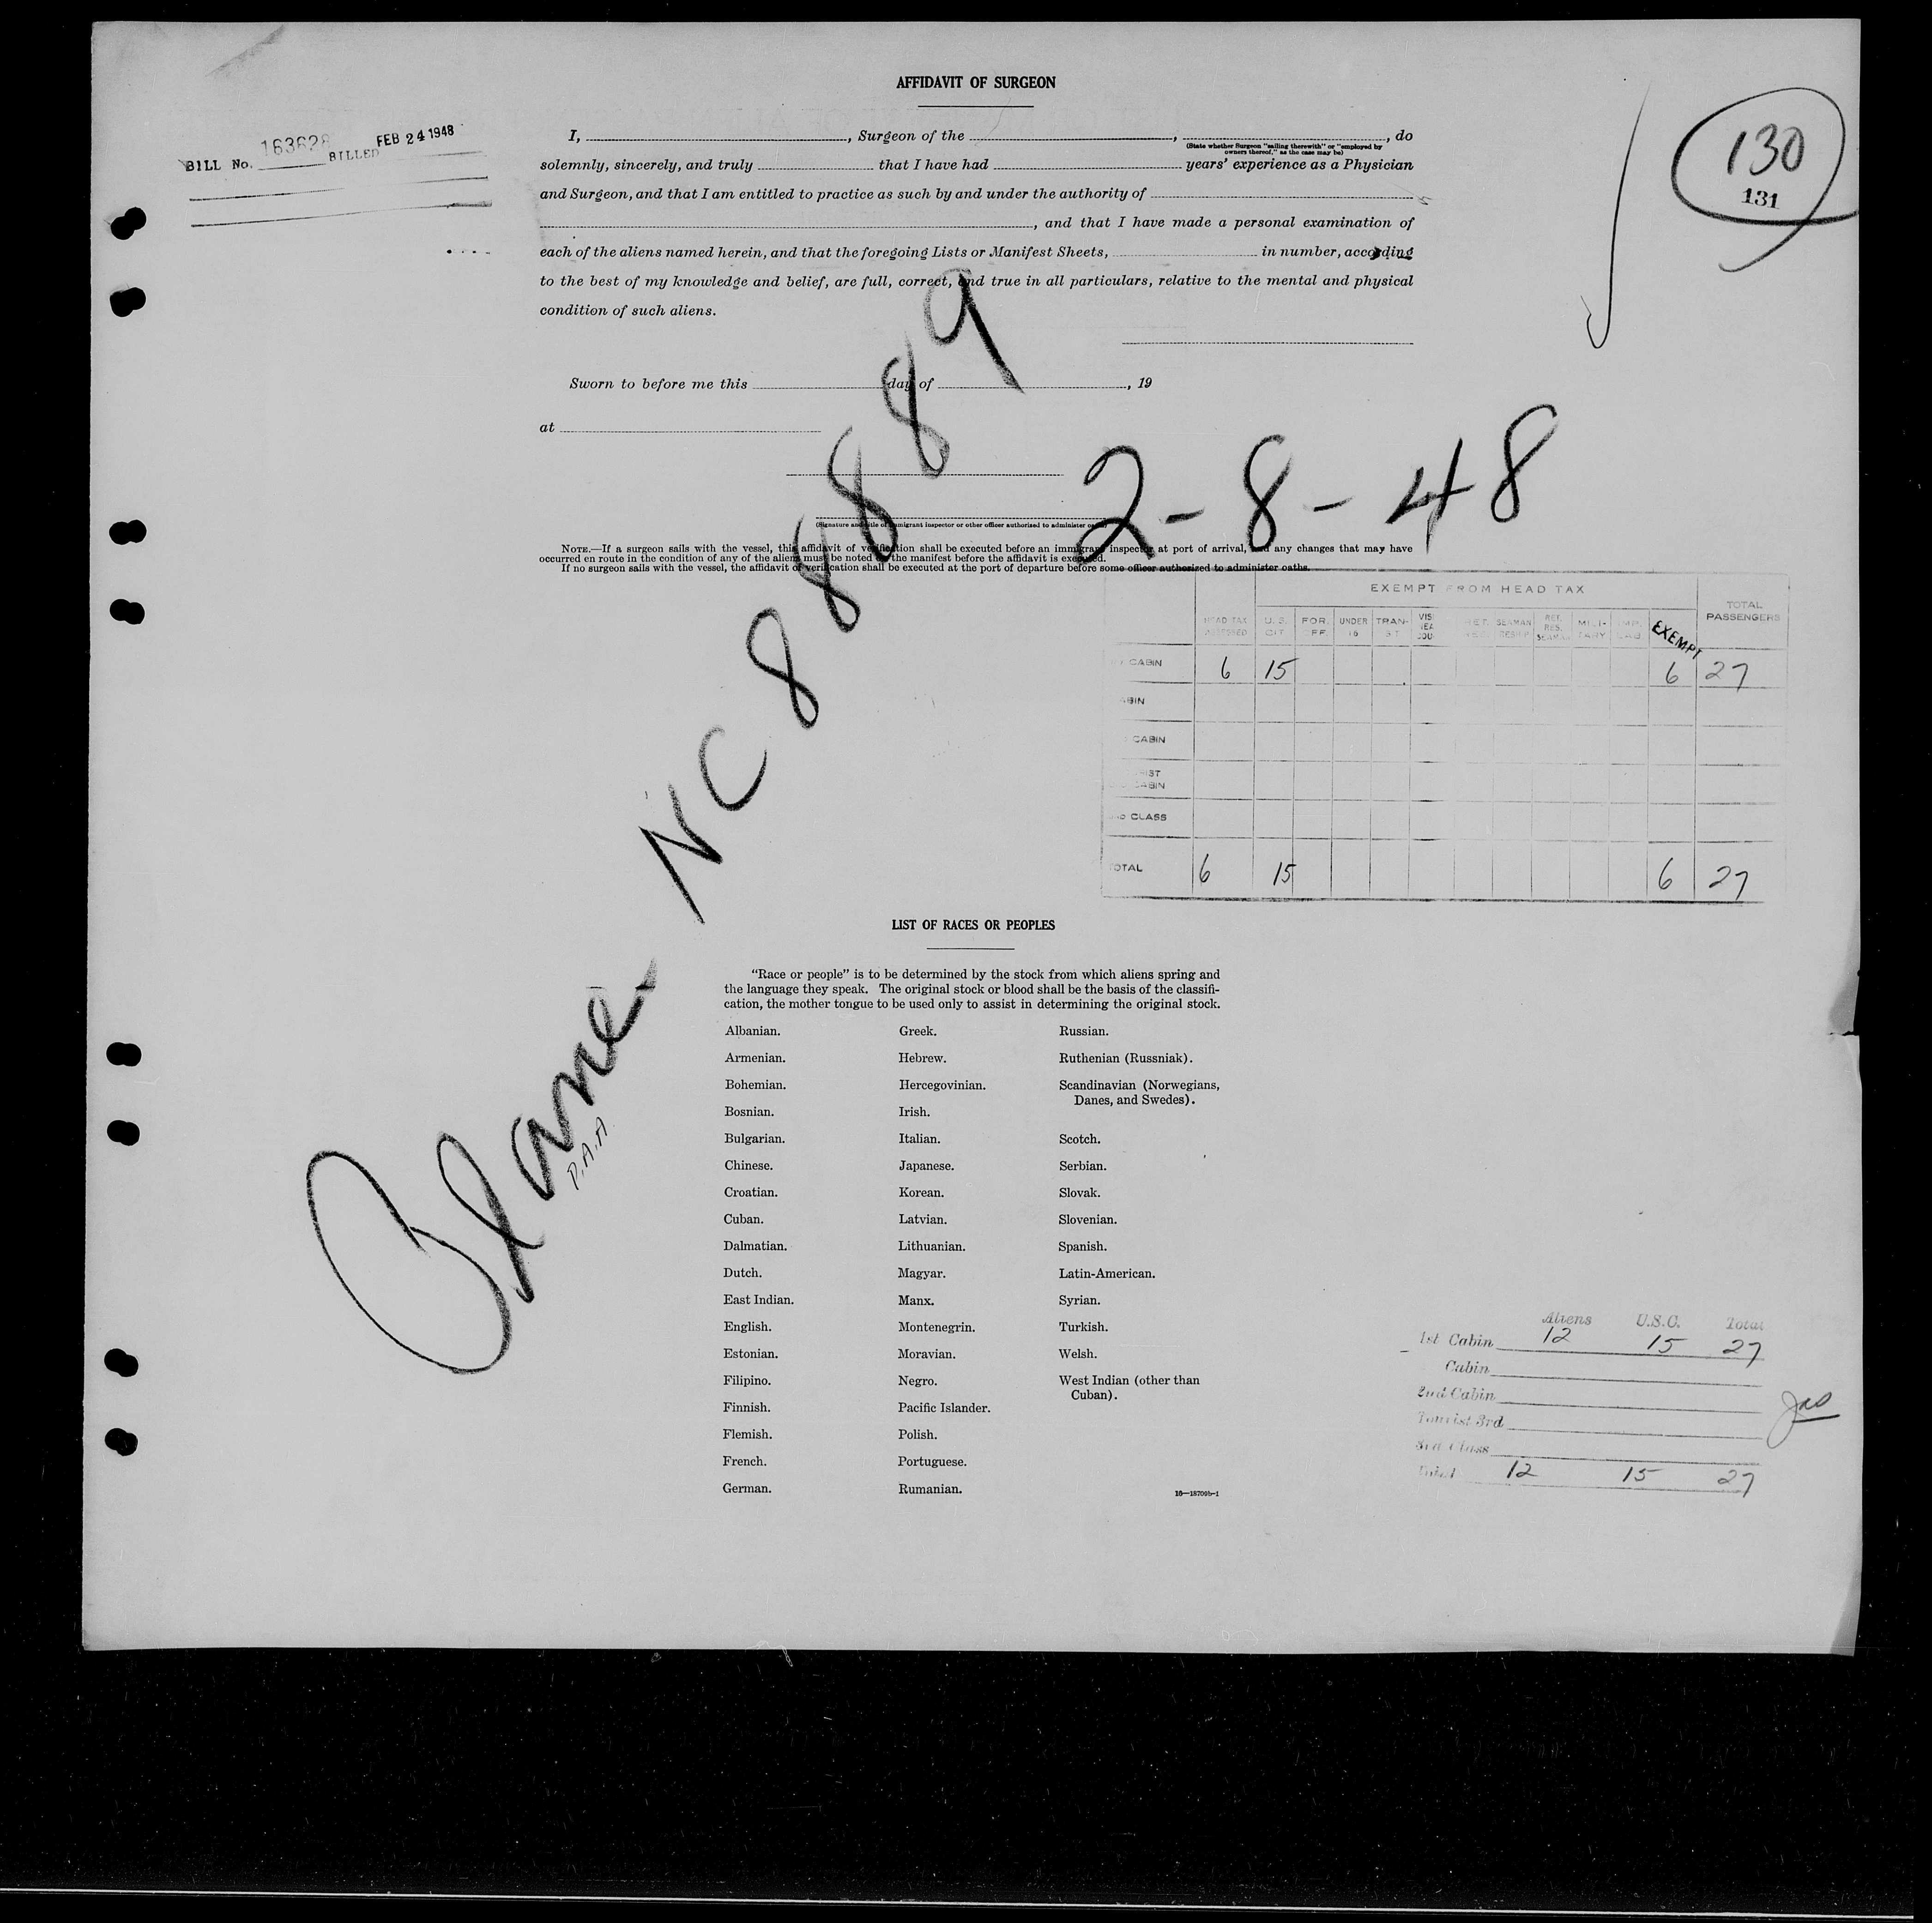 AFFIDAVIT OF SURGEON
BILL No. 163628 BILLED FEB 24 1948
130
131
I, , Surgeon of the , , do
(State whether Surgeon "sailing therewith" or "employed by
owners thereof," as the case may be)
solemnly, sincerely, and truly that I have had years' experience as a Physician
and Surgeon, and that I am entitled to practice as such by and under the authority of
, and that I have made a personal examination of
each of the aliens named herein, and that the foregoing Lists or Manifest Sheets, in number, according
to the best of my knowledge and belief, are full, correct, and true in all particulars, relative to the mental and physical
condition of such aliens.
Sworn to before me this day of , 19
at
(Signature and title of immigrant inspector or other officer authorized to administer oaths)
2-8-48
NOTE.—If a surgeon sails with the vessel, this affidavit of verification shall be executed before an immigrant inspector at port of arrival, and any changes that may have
occurred en route in the condition of any of the aliens must be noted on the manifest before the affidavit is executed.
If no surgeon sails with the vessel, the affidavit of verification shall be executed at the port of departure before some officer authorized to administer oaths.
Plane NC 88889
P.A.A.
EXEMPT FROM HEAD TAX
HEAD TAX ASSESSED U.S. CIT FOR. OFF. UNDER 16 TRAN- ST SEAMAN RET. RES. SEAMAN MILI- TARY EXEMPT TOTAL PASSENGERS
CABIN 6 15 6 27
CABIN
CABIN
CABIN
CLASS
TOTAL 6 15 6 27
LIST OF RACES OR PEOPLES
"Race or people" is to be determined by the stock from which aliens spring and
the language they speak. The original stock or blood shall be the basis of the classifi-
cation, the mother tongue to be used only to assist in determining the original stock.
Albanian. Greek. Russian.
Armenian. Hebrew. Ruthenian (Russniak).
Bohemian. Hercegovinian. Scandinavian (Norwegians,
Danes, and Swedes).
Bosnian. Irish.
Bulgarian. Italian. Scotch.
Chinese. Japanese. Serbian.
Croatian. Korean. Slovak.
Cuban. Latvian. Slovenian.
Dalmatian. Lithuanian. Spanish.
Dutch. Magyar. Latin-American.
East Indian. Manx. Syrian.
English. Montenegrin. Turkish.
Estonian. Moravian. Welsh.
Filipino. Negro. West Indian (other than
Cuban).
Finnish. Pacific Islander.
Flemish. Polish.
French. Portuguese.
German. Rumanian.
16—18709b-1
Aliens U.S.C. Total
1st Cabin 12 15 27
Cabin
2nd Cabin
Tourist 3rd
3rd Class
Total 12 15 27